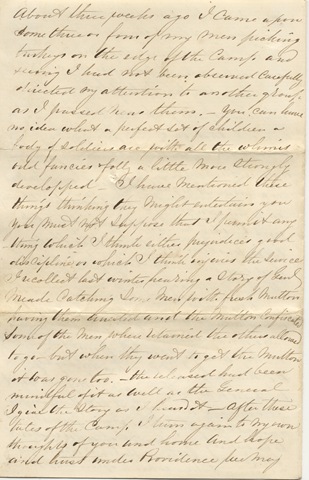 About three weeks ago I came upon
some three or four of my men picking
turkeys on the edge of the Camp and
seeing I had not been observed carefully
directed my attention to another group
as I passed near them. - You can have
no idea what a perfect set of children a
body of soldiers are with all the whims
and fancies folly a little more strongly
developped - I have mentioned these
things thinking they might entertain you
You must not suppose that I permit any
thing which I think either prejudices good
discipline or which I think injures the service
I recollect last winter hearing a story of Genl
Meade Catching some Men with fresh Mutton
having them arrested and the Mutton Confiscated
some of the Men where retained the others allowed
to go but when they went to get the Mutton
it was gone too. - the released had been
mindful of it as well as the General
I give the story as I heard it - After these
tales of the Camp I turn again to my own
thoughts of you and home and hope
and trust under Providence we may